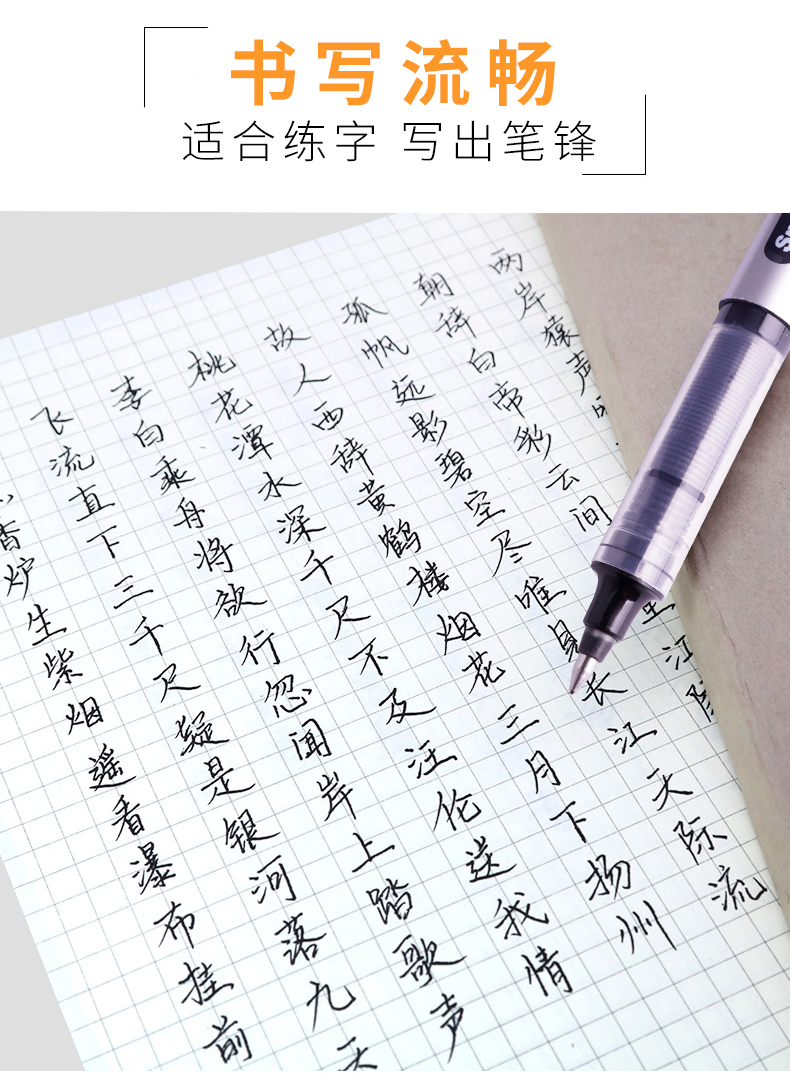 书写流畅
适合练字 写出笔锋
香炉生紫烟遥看瀑布挂前
飞流直下三千尺疑是银河落九天
李白乘舟将欲行忽闻岸上踏歌声
桃花潭水深千尺不及汪伦送我情
故人西辞黄鹤楼烟花三月下扬州
孤帆远影碧空尽唯见长江天际流
朝辞白帝彩云间里江
两岸猿声